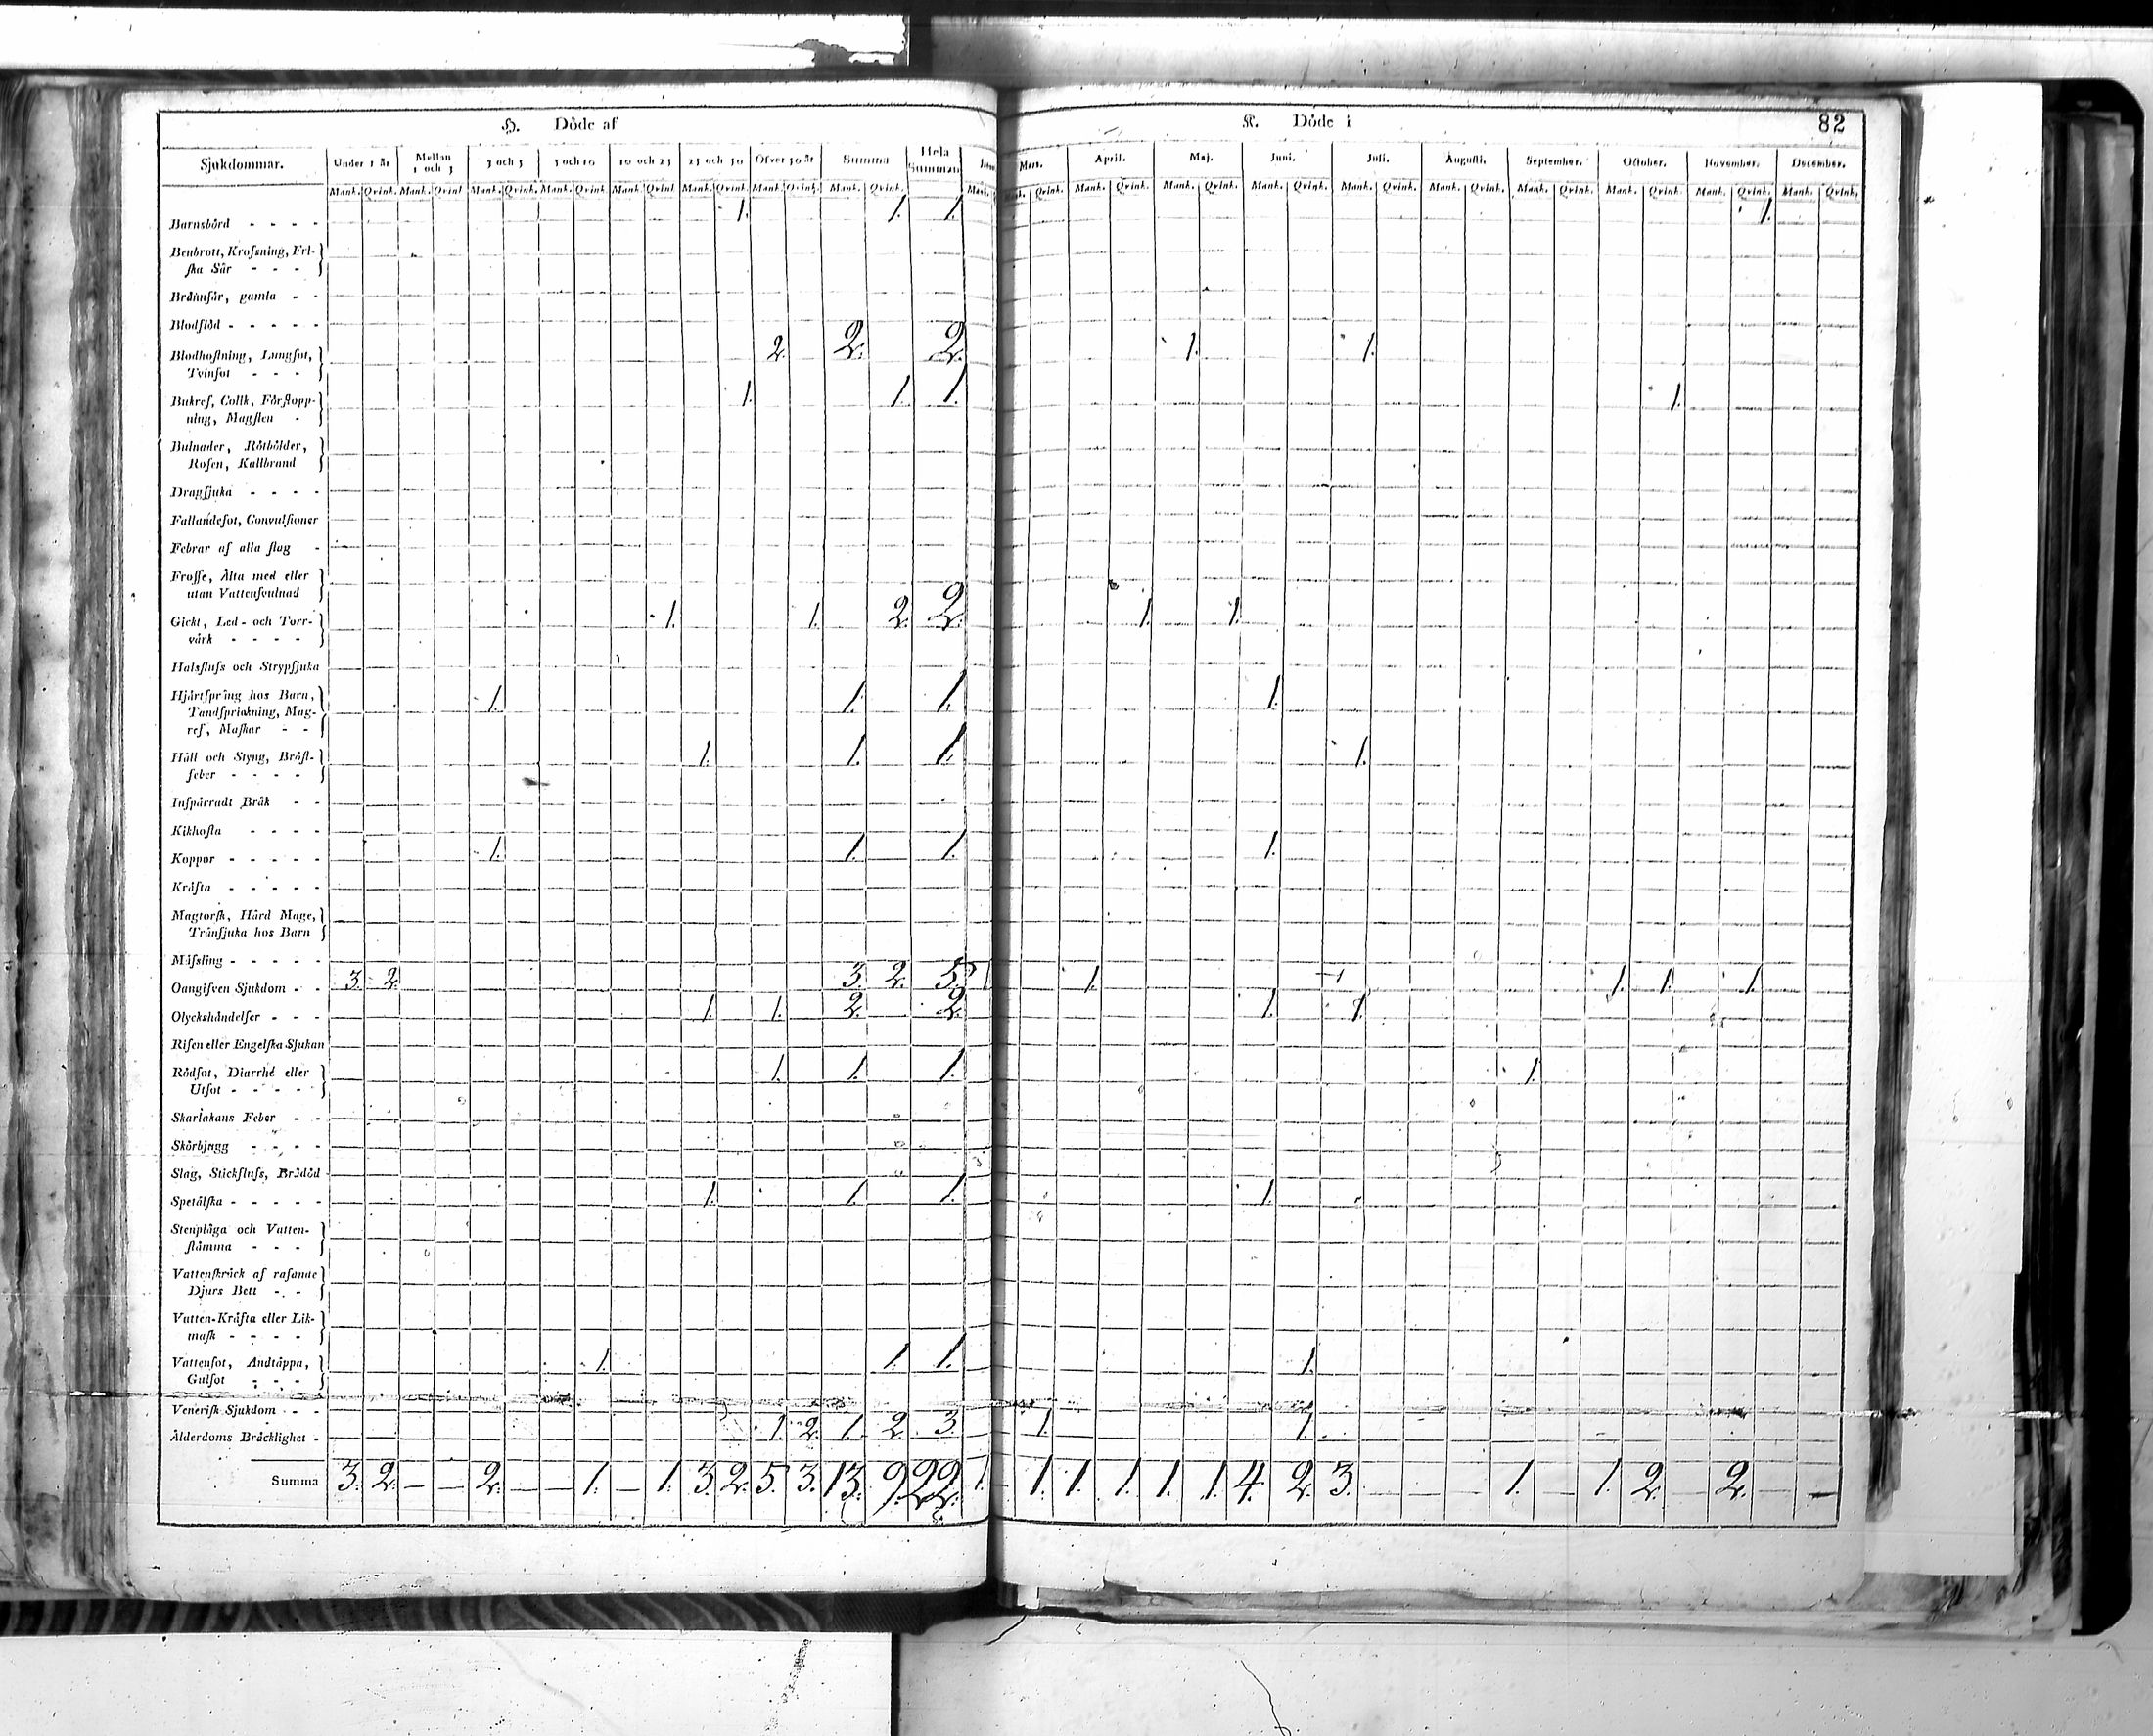 H. Döde af
K. Döde i 82
Sjukdommar. Under 1 år Mellan 1 och 3 3 och 5 5 och 10 10 och 25 25 och 50 Öfver 50 år Summa Hela Summan Mars. April. Maj. Juni. Juli. Augusti. September. October. November. December.
Mank. Qvink. Mank. Qvink. Mank. Qvink. Mank. Qvink. Mank. Qvink. Mank. Qvink. Mank. Qvink. Mank. Qvink. Mank. Mank. Qvink. Mank. Qvink. Mank. Qvink. Mank. Qvink. Mank. Qvink. Mank. Qvink. Mank. Qvink. Mank. Qvink. Mank. Qvink. Mank. Qvink.
Barnsbörd - - - - 1. 1. 1. 1.
Benbrott, Krossning, Fri-
ska Sår - - -
Brännsår, gamla - -
Blodflöd - - - - -
Blodhostning, Lungsot, 2. 2. 2. 1. 1.
Tvinsot - - -
Bukref, Colik, Förstopp- 1. 1. 1. 1.
ning, Magsten -
Bulnader, Rötbölder,
Rosen, Kallbrand
Dragsjuka - - - -
Fallandesot, Convulsioner
Febrar af alla slag -
Frossa, Älta med eller
utan Vattensvulnad
Gickt, Led- och Torr- 1. 1. 2. 2. 1. 1.
värk - - - -
Halsfluss och Strypsjuka
Hjärtspräng hos Barn, 1. 1. 1. 1.
Tandsprickning, Mag-
ref, Maskar - -
Håll och Styng, Bröst- 1. 1. 1. 1.
feber - - - -
Inspärradt Bråk - -
Kikhosta - - - -
Koppor - - - - - 1. 1. 1. 1.
Kräfta - - - - -
Magtorsk, Hård Mage,
Trånsjuka hos Barn
Mässling - - - - -
Oangifven Sjukdom - - 3. 2. 3. 2. 5. 1 1. 1. 1. 1.
Olyckshändelser - - - 1. 1. 2. 2. 1. 1.
Risen eller Engelska Sjukan
Rödsot, Diarrhé eller 1. 1. 1. 1.
Utsot - - - - -
Skarlakans Feber - -
Skörbjugg - - - -
Slag, Stickfluss, Brådöd
Spetälska - - - - - 1. 1. 1. 1.
Stenplåga och Vatten-
stämma - - -
Vattenskräck af rasande
Djurs Bett - - -
Vatten-Kräfta eller Lik-
mask - - - -
Vattensot, Andtäppa, 1. 1. 1. 1.
Gulsot - - -
Venerisk Sjukdom - -
Ålderdoms Bräcklighet - 1. 2. 1. 2. 3. 1. 1.
Summa 3. 2. — — 2. — — 1. — 1. 3. 2. 5. 3. 13. 9. 22. 1. 1. 1. 1. 1. 1. 4. 2. 3. — — — 1. — 1. 2. — 2. — —